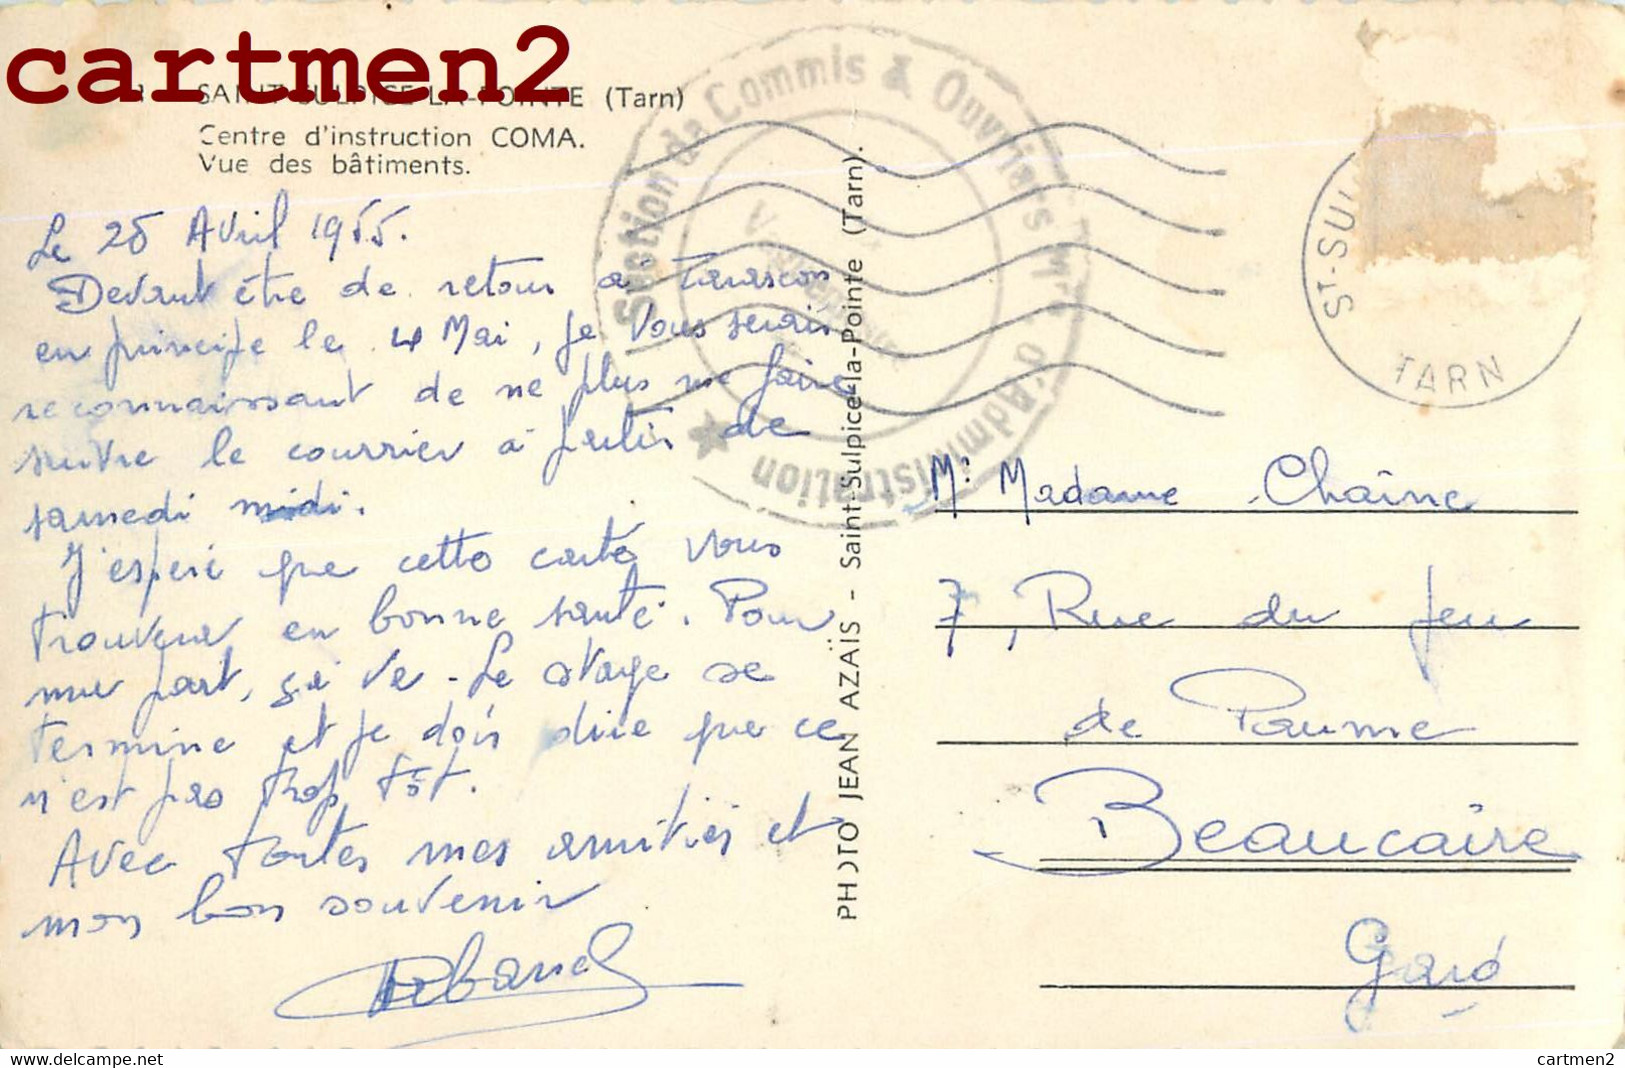 cartmen2
SAINT-SULPICE-LA-POINTE (Tarn)
Centre d'instruction COMA.
Vue des bâtiments.
Le 28 Avril 1955.
Devant être de retour à Tarascon
en principe le 4 Mai, je vous serais
reconnaissant de ne plus me faire
suivre le courrier à partir de
samedi midi.
J'espère que cette carte vous
trouvera en bonne santé. Pour
ma part, ça va. Le stage se
termine et je dois dire que ce
n'est pas trop tôt.
Avec toutes mes amitiés et
mon bon souvenir
Section de Commis & Ouvriers Mres d'Administration
Vaguemestre
PHOTO JEAN AZAÏS - Saint-Sulpice-la-Pointe (Tarn).
ST-SUL
TARN
Mr Madame Chaîne
7, Rue du Jeu
de Paume
Beaucaire
Gard
cartmen2
cartmen2